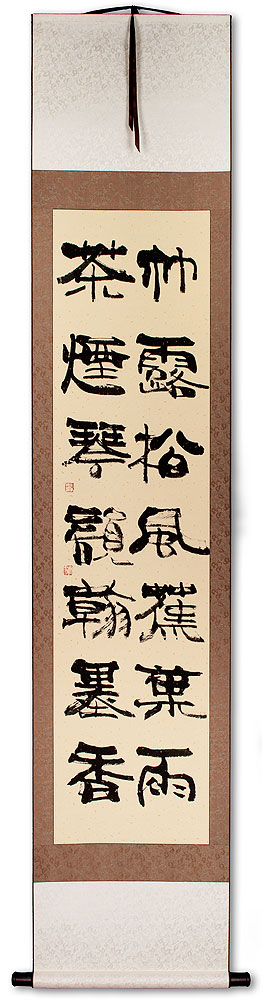 竹露松風蕉葉雨
茶煙琴韻翰墨香